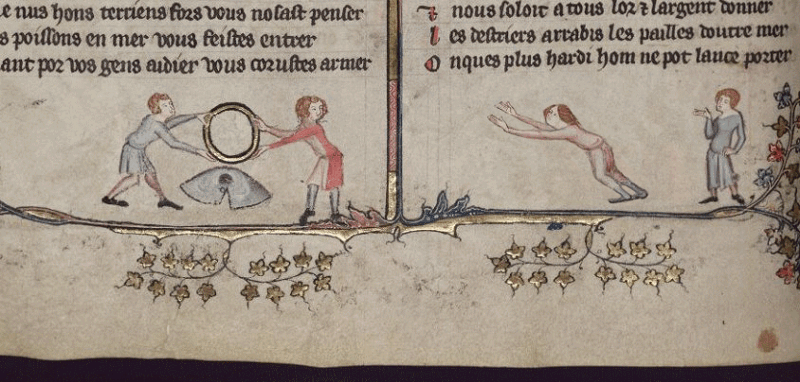 e nus hons terriens fors vous nosast penser
s poissons en mer vous feistes entrer
ant por vos gens aidier vous corustes armer
⁊ nous soloit a tous lor ⁊ largent donner
l es destriers arrabis les pailles doutre mer
O nques plus hardi hom ne pot lance porter